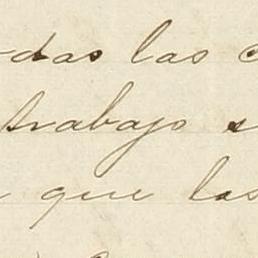 las
trabajo
que las